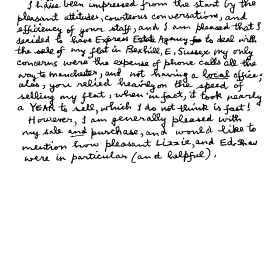 I have been impressed from the start by the
pleasant attitudes, courteous conversations, and
efficiency of your staff, and I am pleased that I
decided to use Express Estate Agency to deal with
the sale of my flat in Bexhill, E. Sussex. My only
concerns were the expense of phone calls all the
way to Manchester, and not having a local office;
also, you relied heavily on the speed of
selling my flat, when in fact, it took nearly
a YEAR to sell, which I do not think is fast!
However, I am generally pleased with
my sale and purchase, and would like to
mention how pleasant Lizzie, and Ed
were in particular (and helpful).